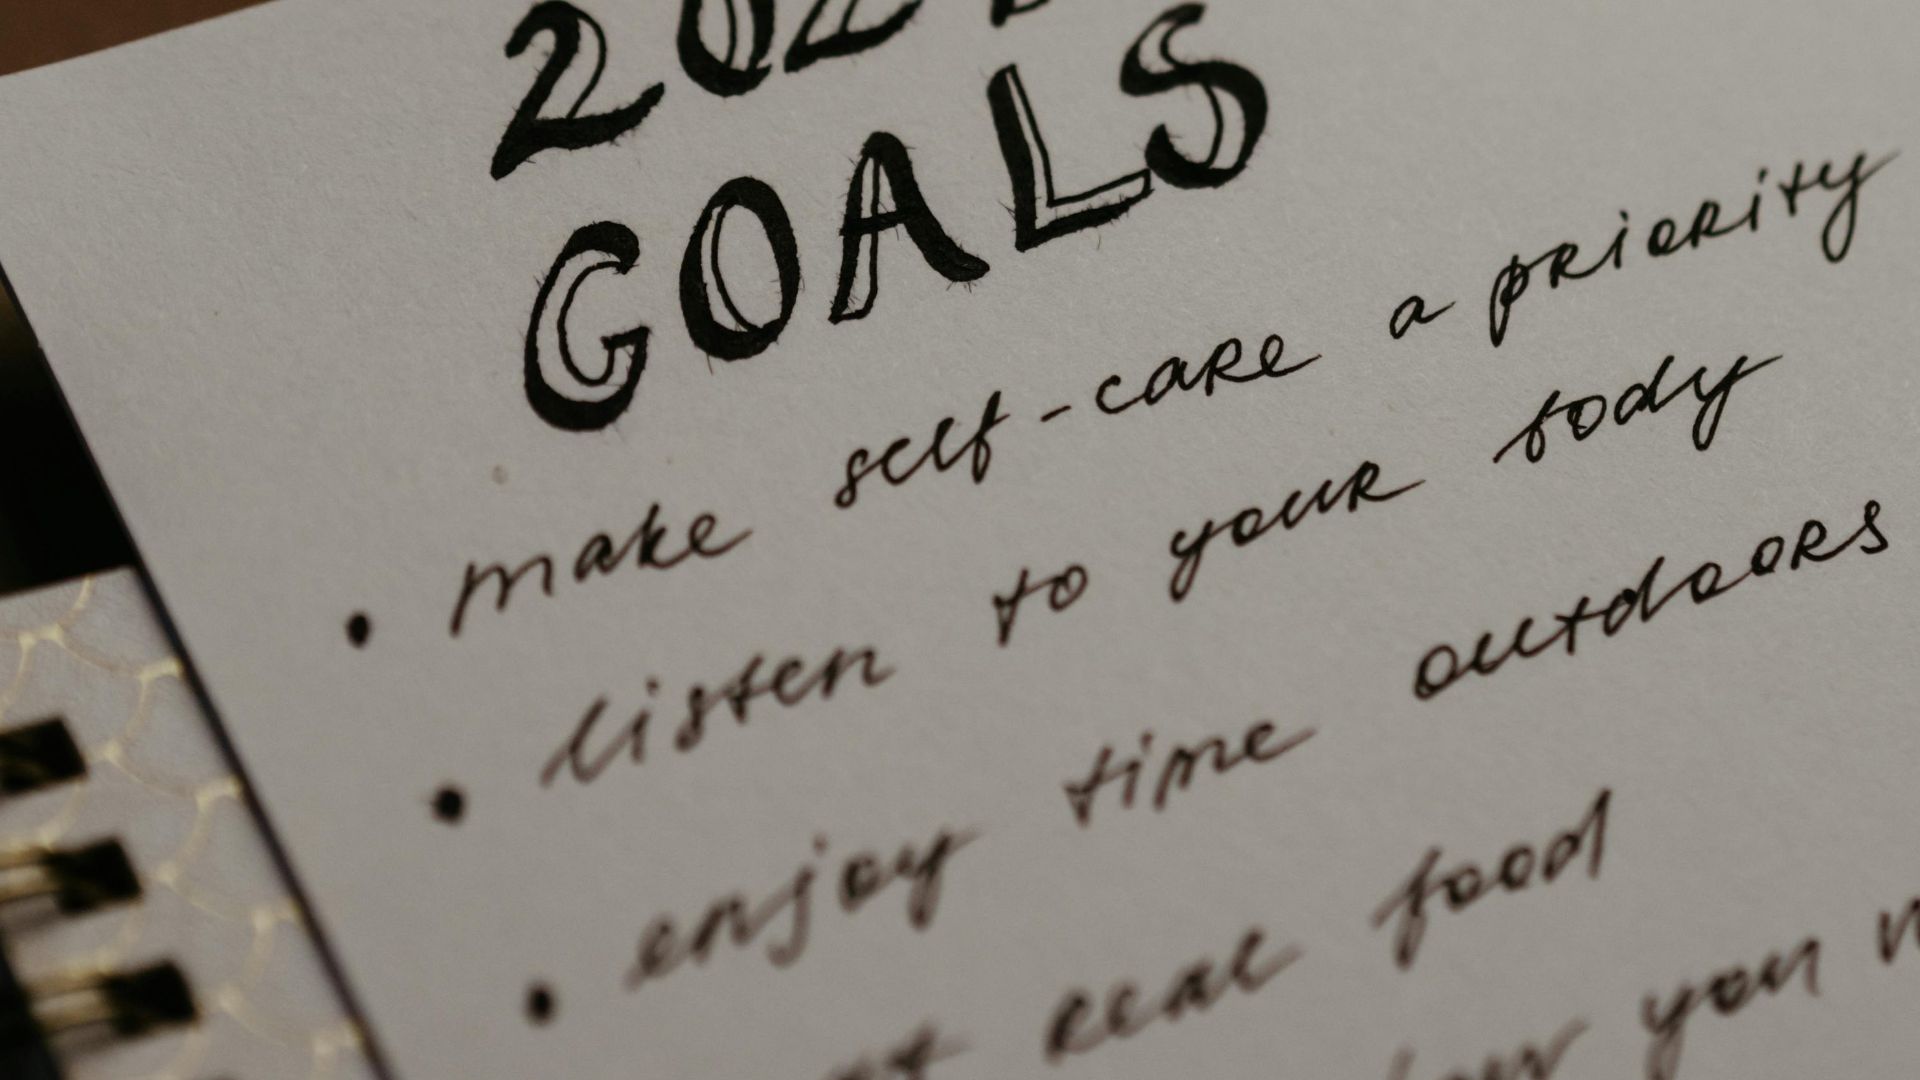 GOALS
make self-care a priority
listen to your body
enjoy time outdoors
real food
you